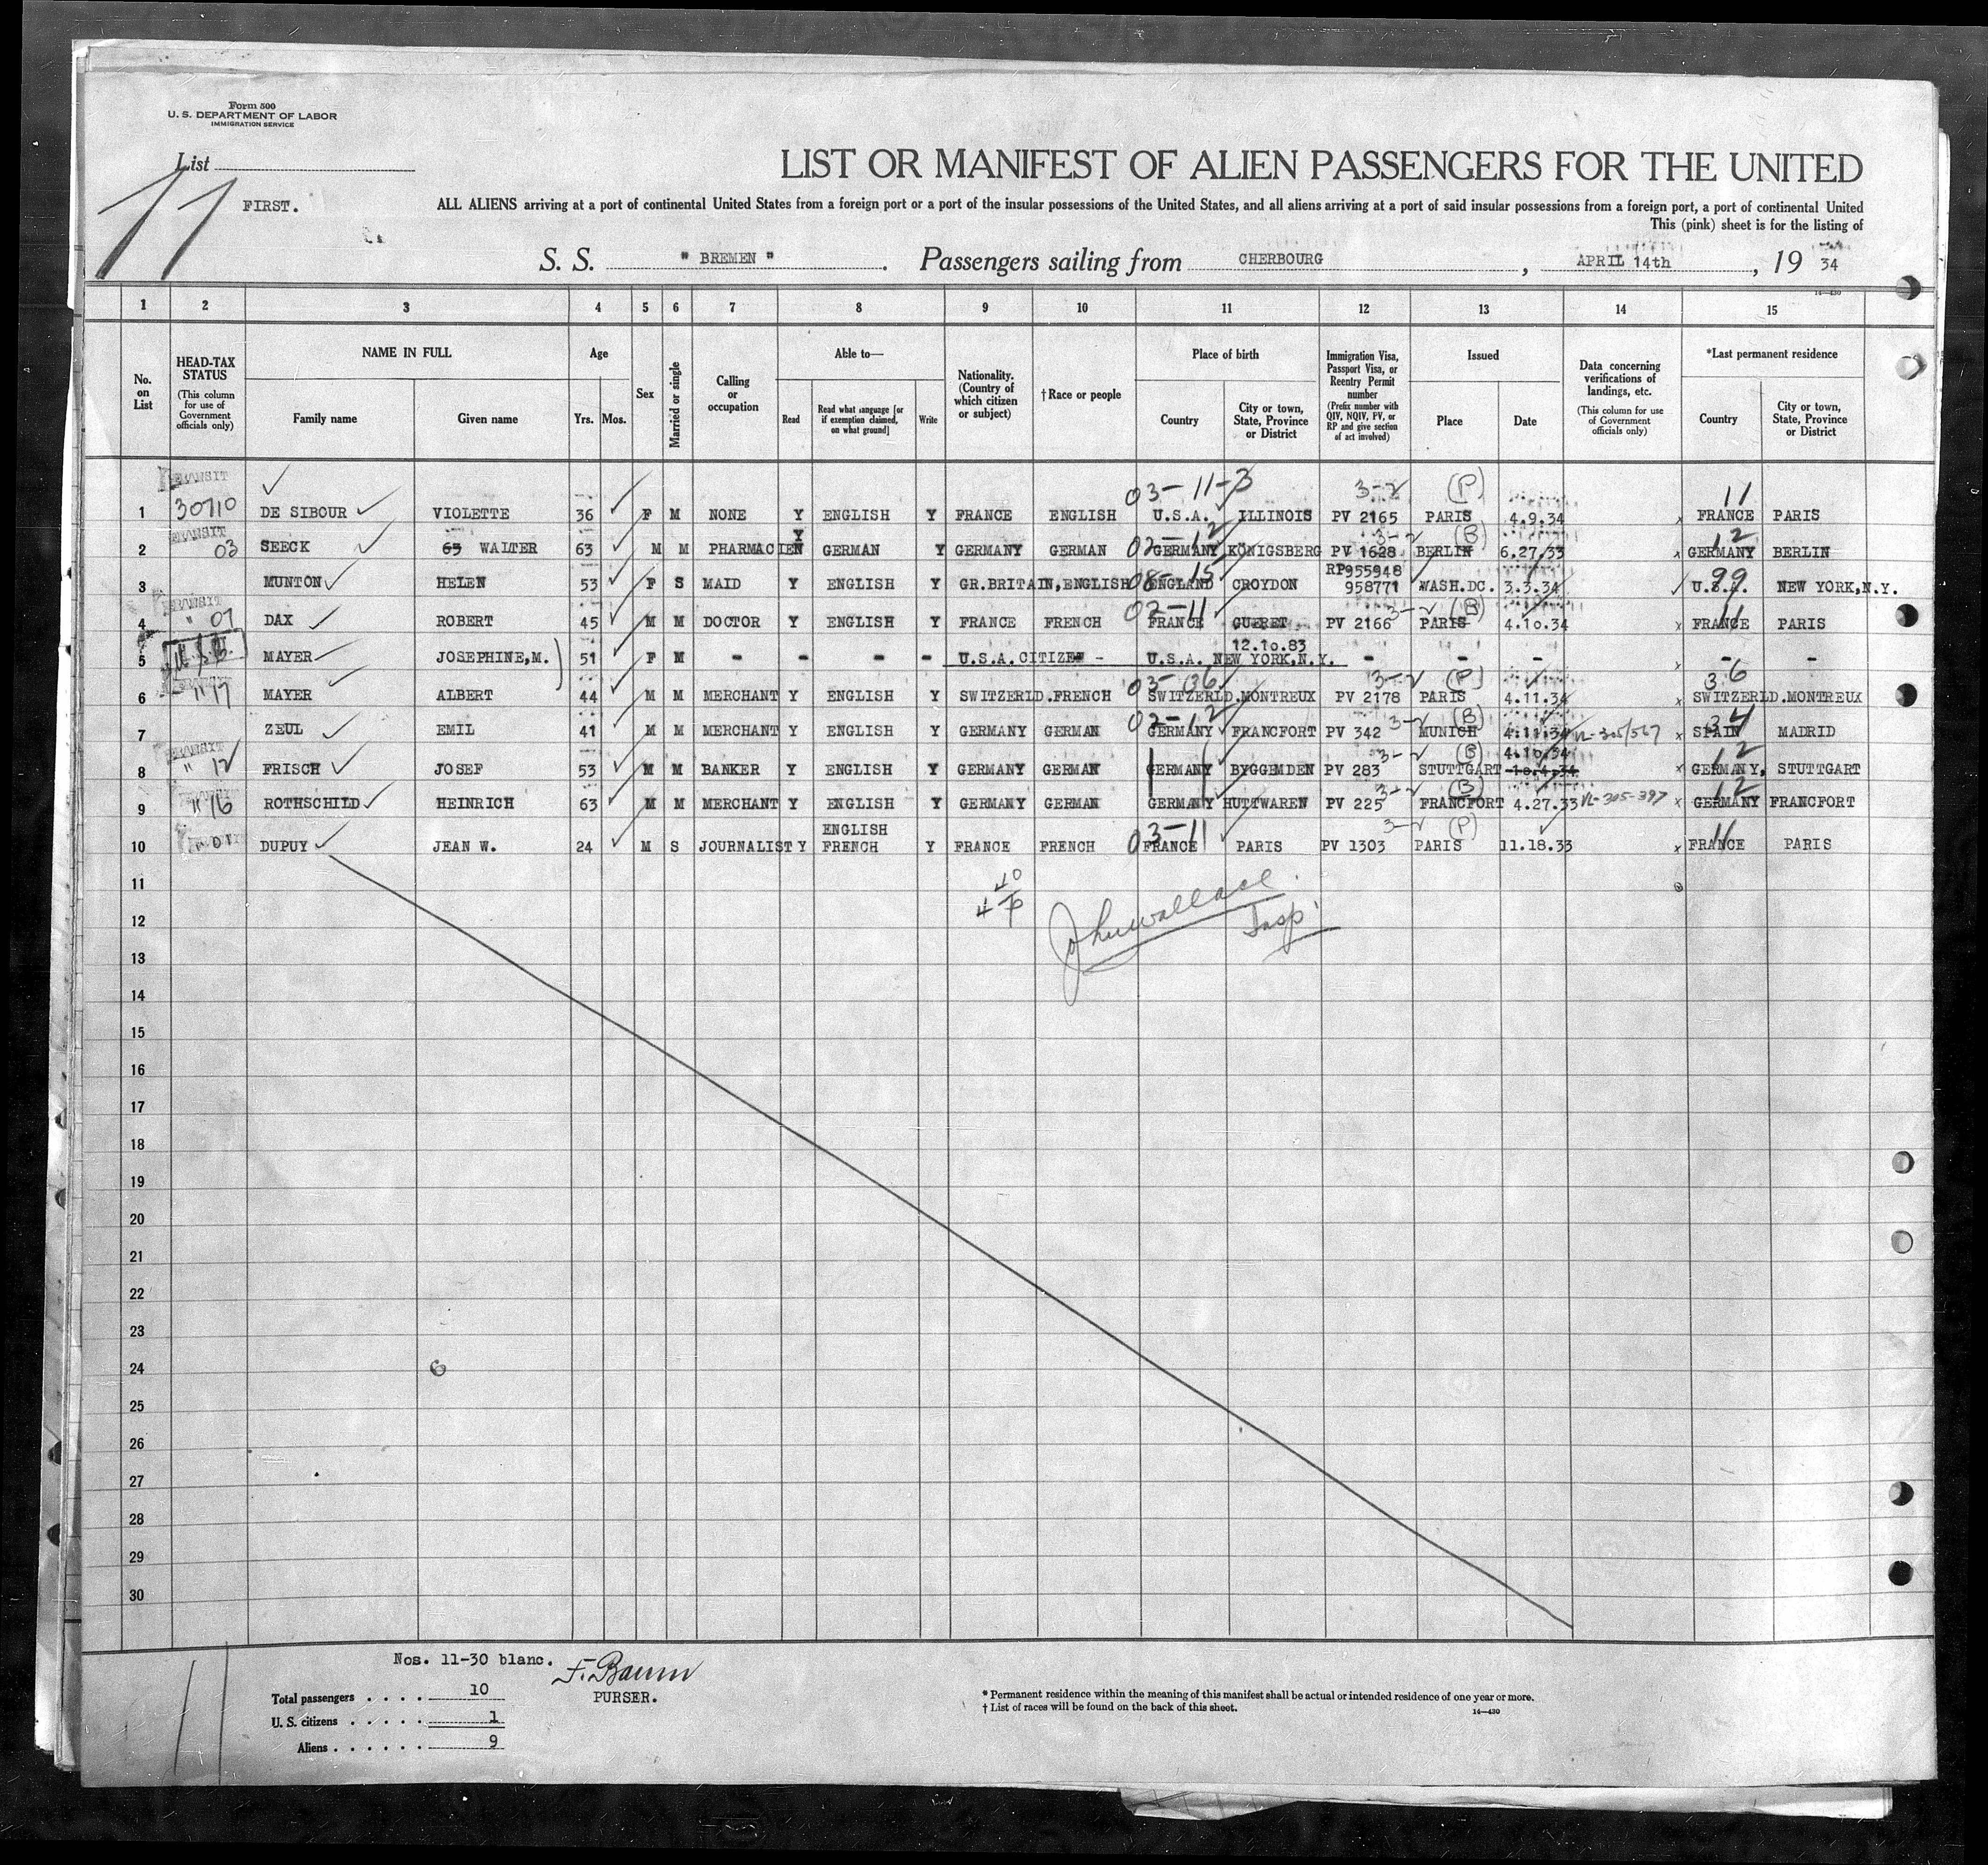 Form 500
U. S. DEPARTMENT OF LABOR
IMMIGRATION SERVICE
List
11
FIRST.
LIST OR MANIFEST OF ALIEN PASSENGERS FOR THE UNITED
ALL ALIENS arriving at a port of continental United States from a foreign port or a port of the insular possessions of the United States, and all aliens arriving at a port of said insular possessions from a foreign port, a port of continental United
This (pink) sheet is for the listing of
S. S. "BREMEN". Passengers sailing from CHERBOURG, APRIL 14th, 19 34
14—430
1 2 3 4 5 6 7 8 9 10 11 12 13 14 15
No. on List
HEAD-TAX STATUS (This column for use of Government officials only)
NAME IN FULL
Family name Given name
Age
Yrs. Mos.
Sex
Married or single
Calling or occupation
Able to—
Read
Read what language [or if exemption claimed, on what ground]
Write
Nationality. (Country of which citizen or subject)
†Race or people
Place of birth
Country
City or town, State, Province or District
Immigration Visa, Passport Visa, or Reentry Permit number (Prefix number with QIV, NQIV, PV, or RP and give section of act involved)
Issued
Place Date
Data concerning verifications of landings, etc. (This column for use of Government officials only)
*Last permanent residence
Country
City or town, State, Province or District
TRANSIT 03-11-3 3-2 (P) 11
1 30710 DE SIBOUR VIOLETTE 36 F M NONE Y ENGLISH Y FRANCE ENGLISH U.S.A. ILLINOIS PV 2165 PARIS 4.9.34 x FRANCE PARIS
TRANSIT 02-12 3-2 (B) 12
2 03 SEECK 63 WALTER 63 M M PHARMACIEN Y GERMAN Y GERMANY GERMAN GERMANY KÖNIGSBERG PV 1628 BERLIN 6.27.33 x GERMANY BERLIN
08-15 RP955948 99
3 MUNTON HELEN 53 F S MAID Y ENGLISH Y GR.BRITAIN,ENGLISH ENGLAND CROYDON 958771 WASH.DC. 3.3.34 U.S.A. NEW YORK,N.Y.
TRANSIT 02-11 3-2 (B) 11
4 " 07 DAX ROBERT 45 M M DOCTOR Y ENGLISH Y FRANCE FRENCH FRANCE GUERET PV 2166 PARIS 4.10.34 x FRANCE PARIS
12.10.83
5 MAYER JOSEPHINE,M. 51 F M - - - - U.S.A.CITIZEN - U.S.A. NEW YORK,N.Y. - - - x - -
03-36 3-2 (P) 36
6 " 17 MAYER ALBERT 44 M M MERCHANT Y ENGLISH Y SWITZERLD.FRENCH SWITZERLD.MONTREUX PV 2178 PARIS 4.11.34 x SWITZERLD.MONTREUX
02-12 3-2 (B) 34
7 ZEUL EMIL 41 M M MERCHANT Y ENGLISH Y GERMANY GERMAN GERMANY FRANCFORT PV 342 MUNICH 4.11.34 VL-305/567 x SPAIN MADRID
TRANSIT 3-2 (B) 4.10.34 12
8 " 12 FRISCH JOSEF 53 M M BANKER Y ENGLISH Y GERMANY GERMAN GERMANY BYGGEMDEN PV 283 STUTTGART 10.4.34 x GERMANY, STUTTGART
3-2 (B) 12
9 " 16 ROTHSCHILD HEINRICH 63 M M MERCHANT Y ENGLISH Y GERMANY GERMAN GERMANY HUTTWAREN PV 225 FRANCFORT 4.27.33 VL-305-397 x GERMANY FRANCFORT
ENGLISH 03-11 3-2 (P) 11
10 " 01 DUPUY JEAN W. 24 M S JOURNALIST Y FRENCH Y FRANCE FRENCH FRANCE PARIS PV 1303 PARIS 11.18.33 x FRANCE PARIS
11
12 John Wallace Insp.
13
14
15
16
17
18
19
20
21
22
23
24 6
25
26
27
28
29
30
Nos. 11-30 blanc.
F. Baum
PURSER.
11
Total passengers . . . . 10
U. S. citizens . . . . . 1
Aliens . . . . . . 9
* Permanent residence within the meaning of this manifest shall be actual or intended residence of one year or more.
† List of races will be found on the back of this sheet.
14—430